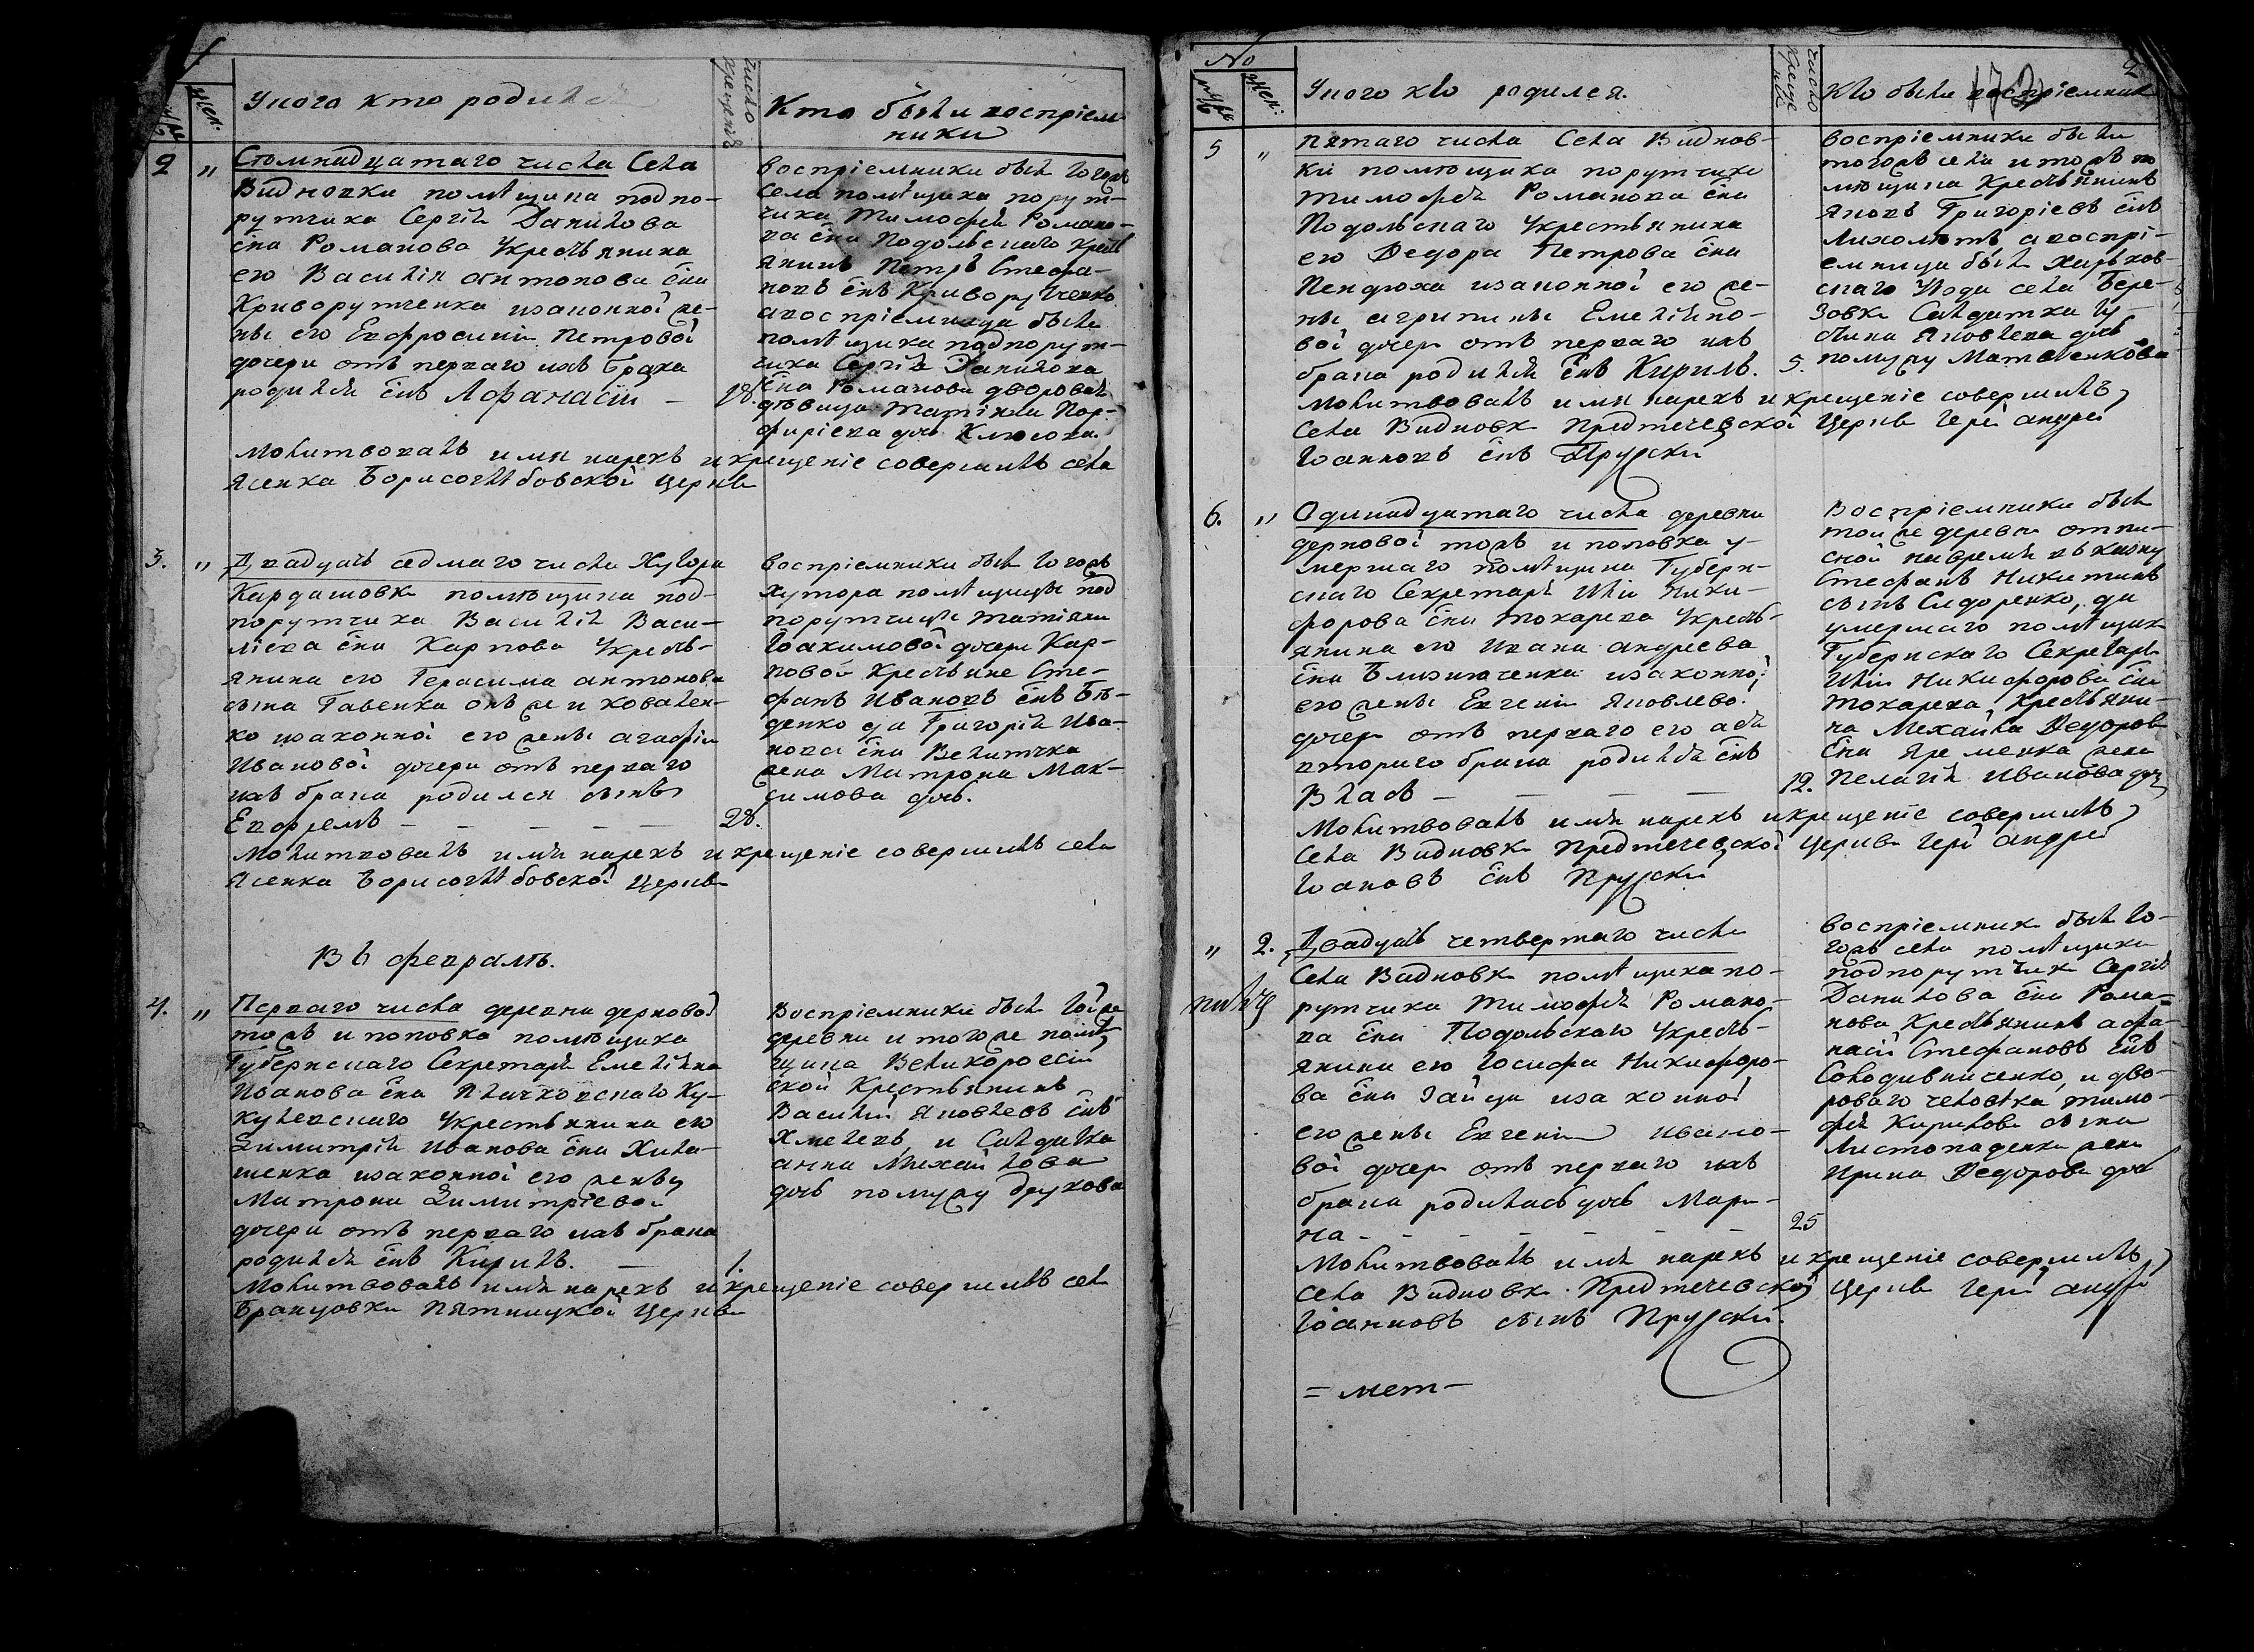 муж:
жен:
Укого кто родился
число крещенія
Кто были воспріем
ники
2 „ Стомнадцатаго числа Села
Видновки помѣщика подпо-
рутчика Сергія Данилова
сна Романова Укрестьянина
его Василія антонова сна
Криворутченка иззаконной же-
ны его Евфросиніи Петровой
дочери отъ перваго ихъ брака
родился снъ Афанасій — 18.
воспріемники были тогожъ
села помѣщика порут-
чика Тимофея Романо-
ва сна Подольскаго крест
янинъ Петръ Стефа-
новъ снъ Криворутченко
авоспріемница была
помѣщика подпорут-
чика Сергія Данилова
сна Романова дворовая
дѣвица Татіяна Пор-
фиріева дочь Клюсова.
Молитвовалъ имя нарекъ и крещеніе совершилъ села
Ясенка Борисоглѣбовской церкви
3. „ Двадцать седмаго числа Хутора
Кардашовки помѣщика под-
порутчика Василія Васи-
лієва сна Карпова Укресть-
янина его Герасима антонова
сына Гавенка онъ же и ковален-
ко иззаконной его жены агафіи
Ивановой дочери отъ перваго
ихъ брака родился сынъ
Евфремъ — — — — — 28.
воспріемники были тогожъ
хутора помѣщицы под
порутчицы татіяны
Іоакимовой дочери Кар-
повой Крестьяне Сте-
фанъ Ивановъ снъ Бѣ-
денко да Григорій Ива-
нова сна Величка
жена Матрона Мак-
симова дочь.
Молитвовалъ имя нарекъ и крещеніе совершилъ села
Ясенка Борисоглѣбовской церкви
Въ февралѣ.
4. „ Перваго числа деревни дерновой
тожъ и поповка помѣщика
Губернскаго Секретаря Емеліяна
Иванова сна Плачковскаго Ку-
кулевскаго Укрестьянина его
Димитрія Иванова сна Хила-
шенка иззаконной его жены
Матроны Димитріевой
дочери отъ перваго ихъ брака
родился снъ Кирилъ. — 1.
Воспріемники были тойже
деревни и тогоже помѣ
щика Великороссій
ской Крестьянинъ
Василій Яковлевъ снъ
Хмелевъ, и Салдатка
анна Михайлова
дочь помужу Брухова
Молитвовалъ имя нарекъ и крещеніе совершилъ села
Бранцовки Пятницкой Церкви
No
муж:
жен:
Укого кто родился.
число крещенія
Кто были воспріемники
173
2
5 „ Пятаго числа Села Виднов-
ки помѣщика порутчика
Тимофея Романова сна
Подольскаго Укрестьянина
его Ѳедора Петрова сна
Пендюха иззаконной его же-
ны агрипины Емеліяно-
вой дочери отъ перваго ихъ
брака родился снъ Кирилъ. 5.
воспріемники были
тогожъ села и тогожъ по
мѣщика Крестьянинъ
Яковъ Григоріевъ снъ
Лихолѣтъ, авоспрі-
емница была Харьков-
скаго Уѣзда села Бере-
зовки Салдатка Іу-
стина Яковлева дочь
помужу Матвѣенкова
Молитвовалъ имя нарекъ и крещеніе совершилъ
Села Видновк Предтечевской Церкви Іерей андрей
Іоанновъ снъ Прускій
6. „ Одинадцатаго числа деревни
дерновой тожъ и поповка у-
мершаго помѣщика Губерн-
скаго Секретаря Иліи Ники-
форова сна Токарева Укресть-
янина его Ивана андреева
сна Близнюченка иззаконной
его жены Евгеніи Яковлево:
дочери отъ перваго его аея
втораго брака родился снъ
Власъ — — — — 12.
Воспріемники были
тойже деревни отпи-
сной навремя въ казну
Стефанъ Никитинъ
сынъ Сидоренко, да
умершаго помѣщик
Губернскаго Секретаря
Иліи Никифорова сна
Токарева Крестьяни-
на Михайла Ѳедоров
сна Яременка жена
Пелагія Иванова дочь
Молитвовалъ имя нарекъ и крещеніе совершилъ
Села Видновк Предтечевской Церкви Іерей андрей
Іоановъ снъ Прускій
„ 2. Двадцать четвертаго числа
Села Видновк помѣщика по-
рутчика Тимофея Романо-
ва сна Подольскаго Укресть-
янина его Іосифа Никифоро-
ва сна Зайца иззаконной
его жены Евгеніи Ивано-
вой дочери отъ перваго ихъ
брака родилась дочь Мари-
на — — — — — — 25
воспріемник были то-
гожъ села помѣщика
подпорутчик Сергія
Данилова сна Рома-
нова Крестьянинъ афа-
насій Стефановъ снъ
Солодивниченко, и дво-
роваго человѣка тимо-
фея Кирилова сына
Листопаденка жена
Ирина Ѳедорова дочь
Молитвовалъ имя нарекъ и крещеніе совершилъ
села Видновк Предтечевской Церкви Іерей андрей
Іоанновъ сынъ Прускій.
= мет —